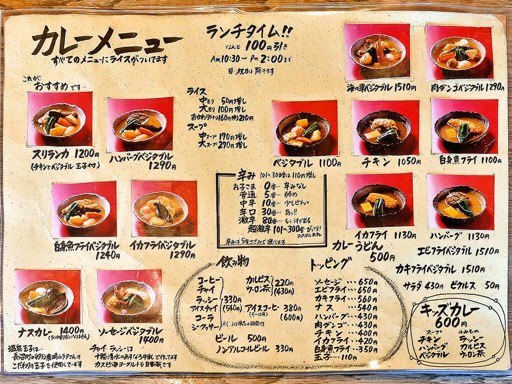 カレーメニュー
すべてのメニューにライスがついてます
ランチタイム!!
100円引き
Am10:30〜Pm2:00まで
これが
おすすめです…
スリランカ 1200円
(チキンとベジタブル 玉子付)
ハンバーグベジタブル
1290円
白身魚フライベジタブル
1240円
イカフライベジタブル
1290円
ナスカレー 1400円
ソーセージベジタブル
1400円
ライス
中もり 50円増し
大もり 100円増し
スープ
中スープ 190円増し
大スープ 290円増し
海の幸ベジタブル 1510円
肉ダンゴベジタブル 1290円
ベジタブル 1100円
チキン 1050円
白身魚フライ 1100円
イカフライ 1130円
ハンバーグ 1130円
カレーうどん
500円
エビフライベジタブル 1510円
カキフライベジタブル 1510円
サラダ 430円 ピクルス 50円
辛み 101〜300倍は110円増し
お子さま 0倍
普通 5倍
中辛 10倍
辛口 30倍
激辛 80倍
超激辛 101〜300倍
飲み物
コーヒー
チャイ
ラッシー
アイスチャイ
コーラ
330円
カルピス
ウーロン茶
220円
アイスコーヒー 380円
ビール 500円
ノンアルコールビール 330円
トッピング
ソーセージ 650円
エビフライ 650円
カキフライ 650円
ナス 540円
ハンバーグ 430円
肉ダンゴ 430円
チキン 430円
イカフライ 420円
白身魚フライ 350円
玉子 110円
キッズカレー
600円
スープ
チキン
ハンバーグ
ベジタブル
ラッシー
カルピス
ウーロン茶
チャイ ラッシーは